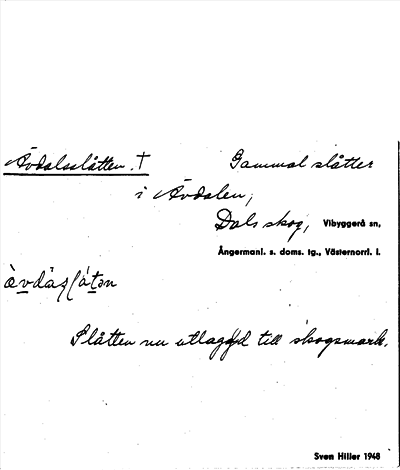 Avdalsslåtten. † Gammal slåtter
i Avdalen,
Dals skog, Vibyggerå sn,
Ångermanl. s. doms. tg., Västernorrl. l.
Slåtten nu utlagd till skogsmark.
Sven Hiller 1948